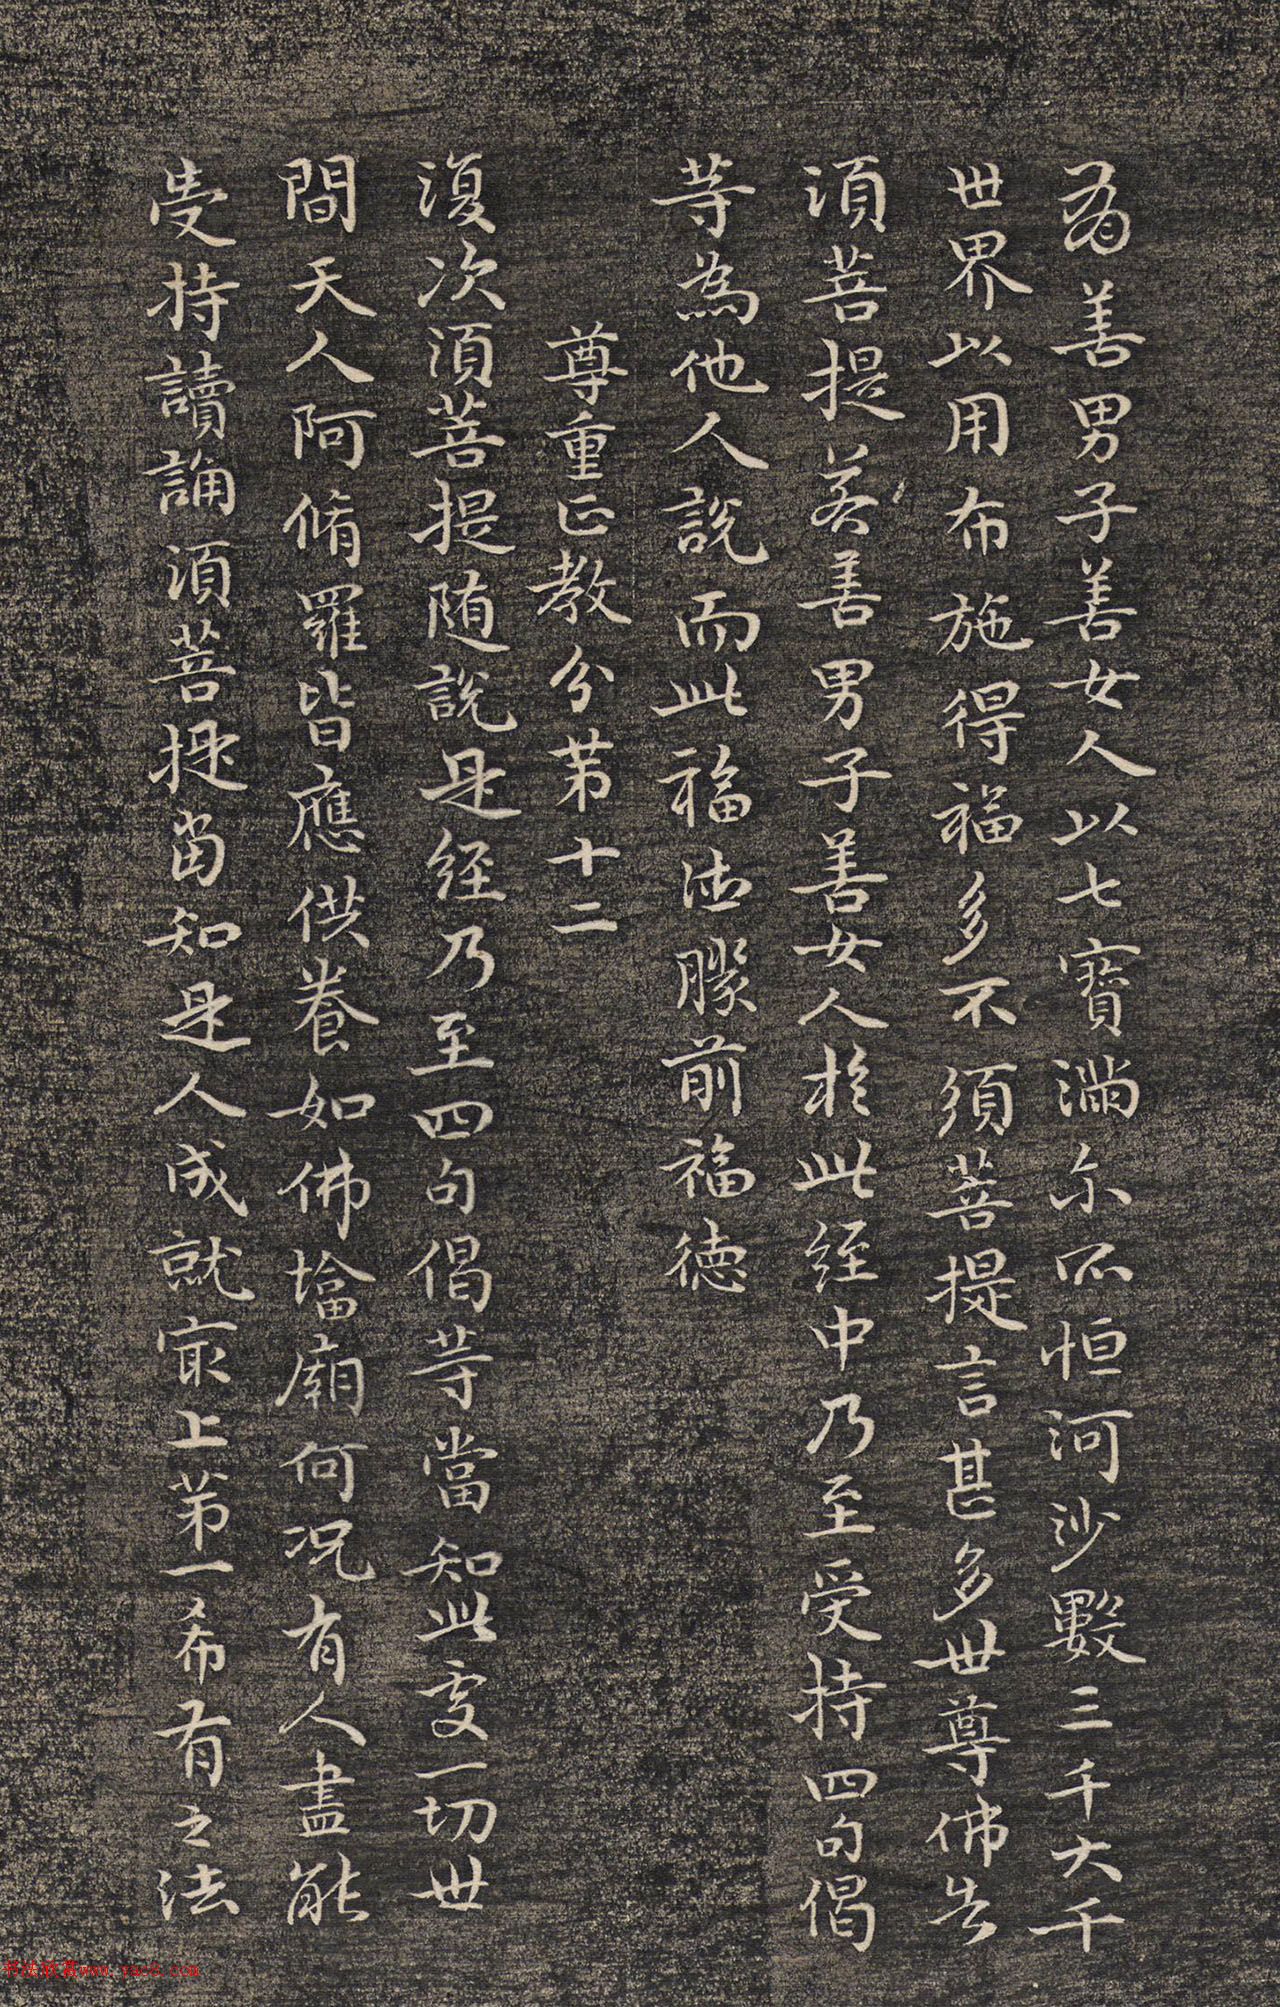 若善男子善女人以七寶滿尔所恒河沙數三千大千
世界以用布施得福多不須菩提言甚多世尊佛告
須菩提若善男子善女人於此經中乃至受持四句偈
等為他人說而此福德勝前福德
尊重正教分第十二
復次須菩提随說是經乃至四句偈等當知此處一切世
間天人阿脩羅皆應供養如佛塔廟何况有人盡能
受持讀誦須菩提當知是人成就最上第一希有之法